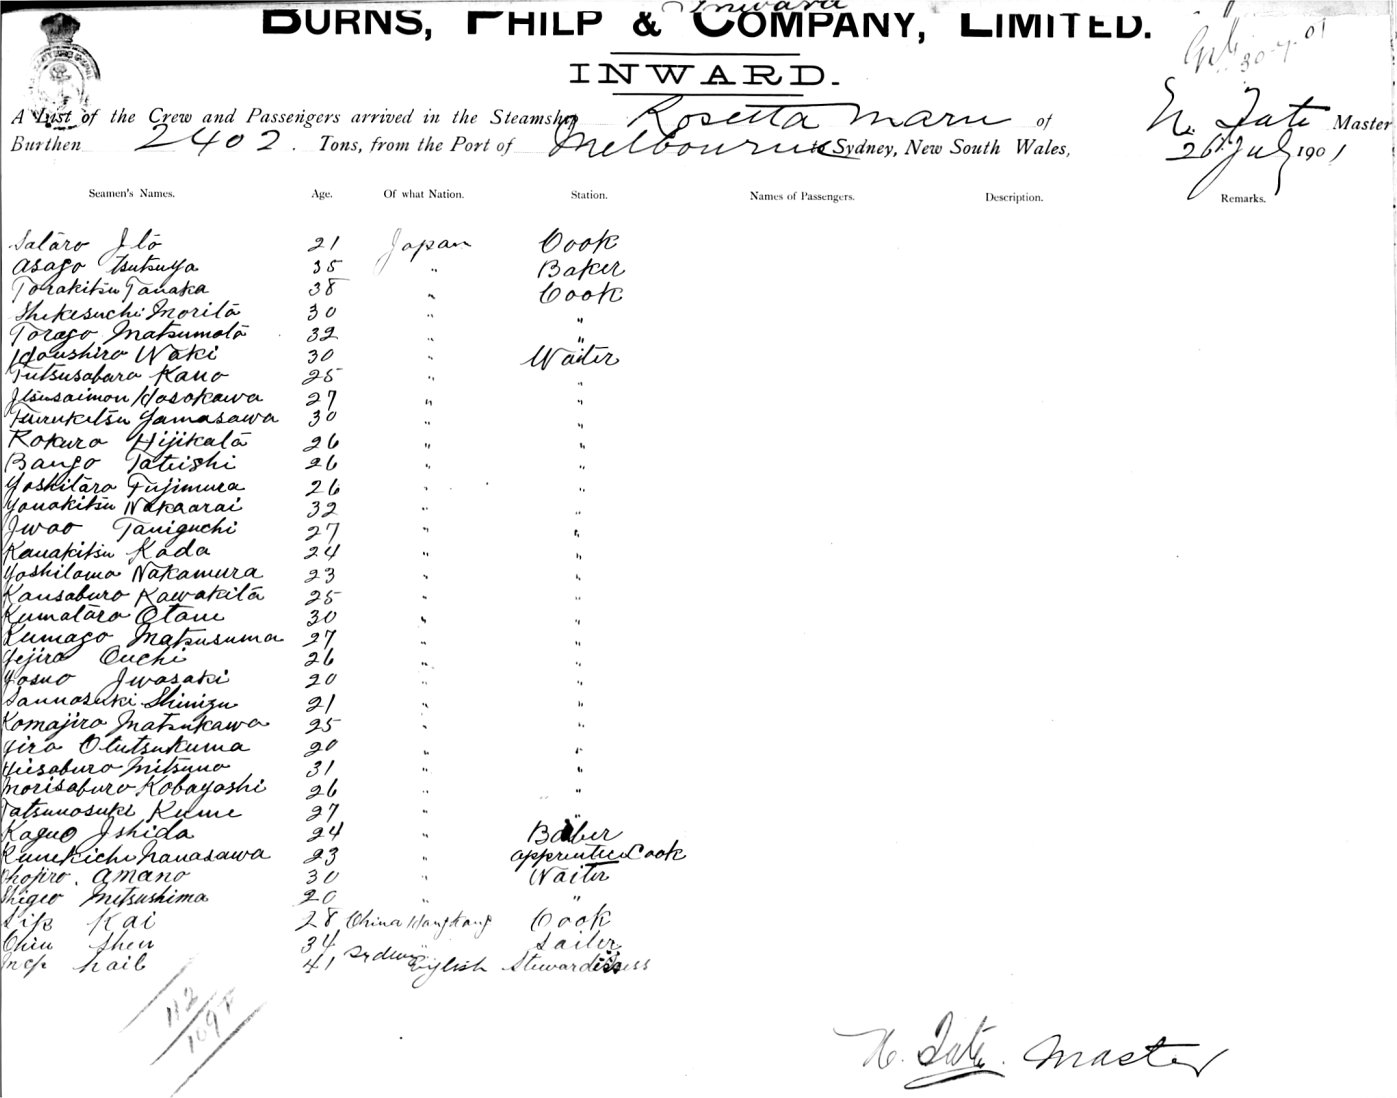 Inward
BURNS, PHILP & COMPANY, LIMITED.
30-7-01
INWARD.
A List of the Crew and Passengers arrived in the Steamship Rosetta Maru of N. Tate Master
Burthen 2402. Tons, from the Port of Melbourne to Sydney, New South Wales, 26th July 1901
Seamen's Names. Age. Of what Nation. Station. Names of Passengers. Description. Remarks.
Satāro Itō 21 Japan Cook
Asago Tsutsuya 35 " Baker
Torakitsu Tanaka 38 " Cook
Shikesuchi Moritā 30 " "
Torago Matsumotā 32 " "
Waki 30 " Waiter
Tutsusabura Kano 25 " "
Itsusaimon Hosokawa 27 " "
Furukitsu Yamasawa 30 " "
Rokuro Hijikatā 26 " "
Bango Tateishi 26 " "
Yoshitāro Fujimura 26 " "
Yonakitsu Nakaarai 32 " "
Iwao Taniguchi 27 " "
Kanakitsu Kada 24 " "
Yoshitama Nakamura 23 " "
Kansaburo Kawakitā 25 " "
Kumatāro Otani 30 " "
Kumago Matsusuma 27 " "
Yejiro Ouchi 26 " "
Yosuo Iwasaki 20 " "
Sannosuki Shimizu 21 " "
Komajiro Matsukawa 25 " "
Jiro Otutsukuma 20 " "
Hisaburo Mitsuno 31 " "
Morisaburo Kobayashi 26 " "
Tatsunosuki Kume 27 " "
Kaguo Ishida 24 " Barber
Kunekichi Nanasawa 23 " apprentice Cook
Chojiro. Amano 30 " Waiter
Shigeo Mitsushima 20 " "
Kai 28 China Hongkong Cook
Chin Shen 34 " Sailer
Nail 41 Sydney English Stewardess
112
109
N. Tate. Master